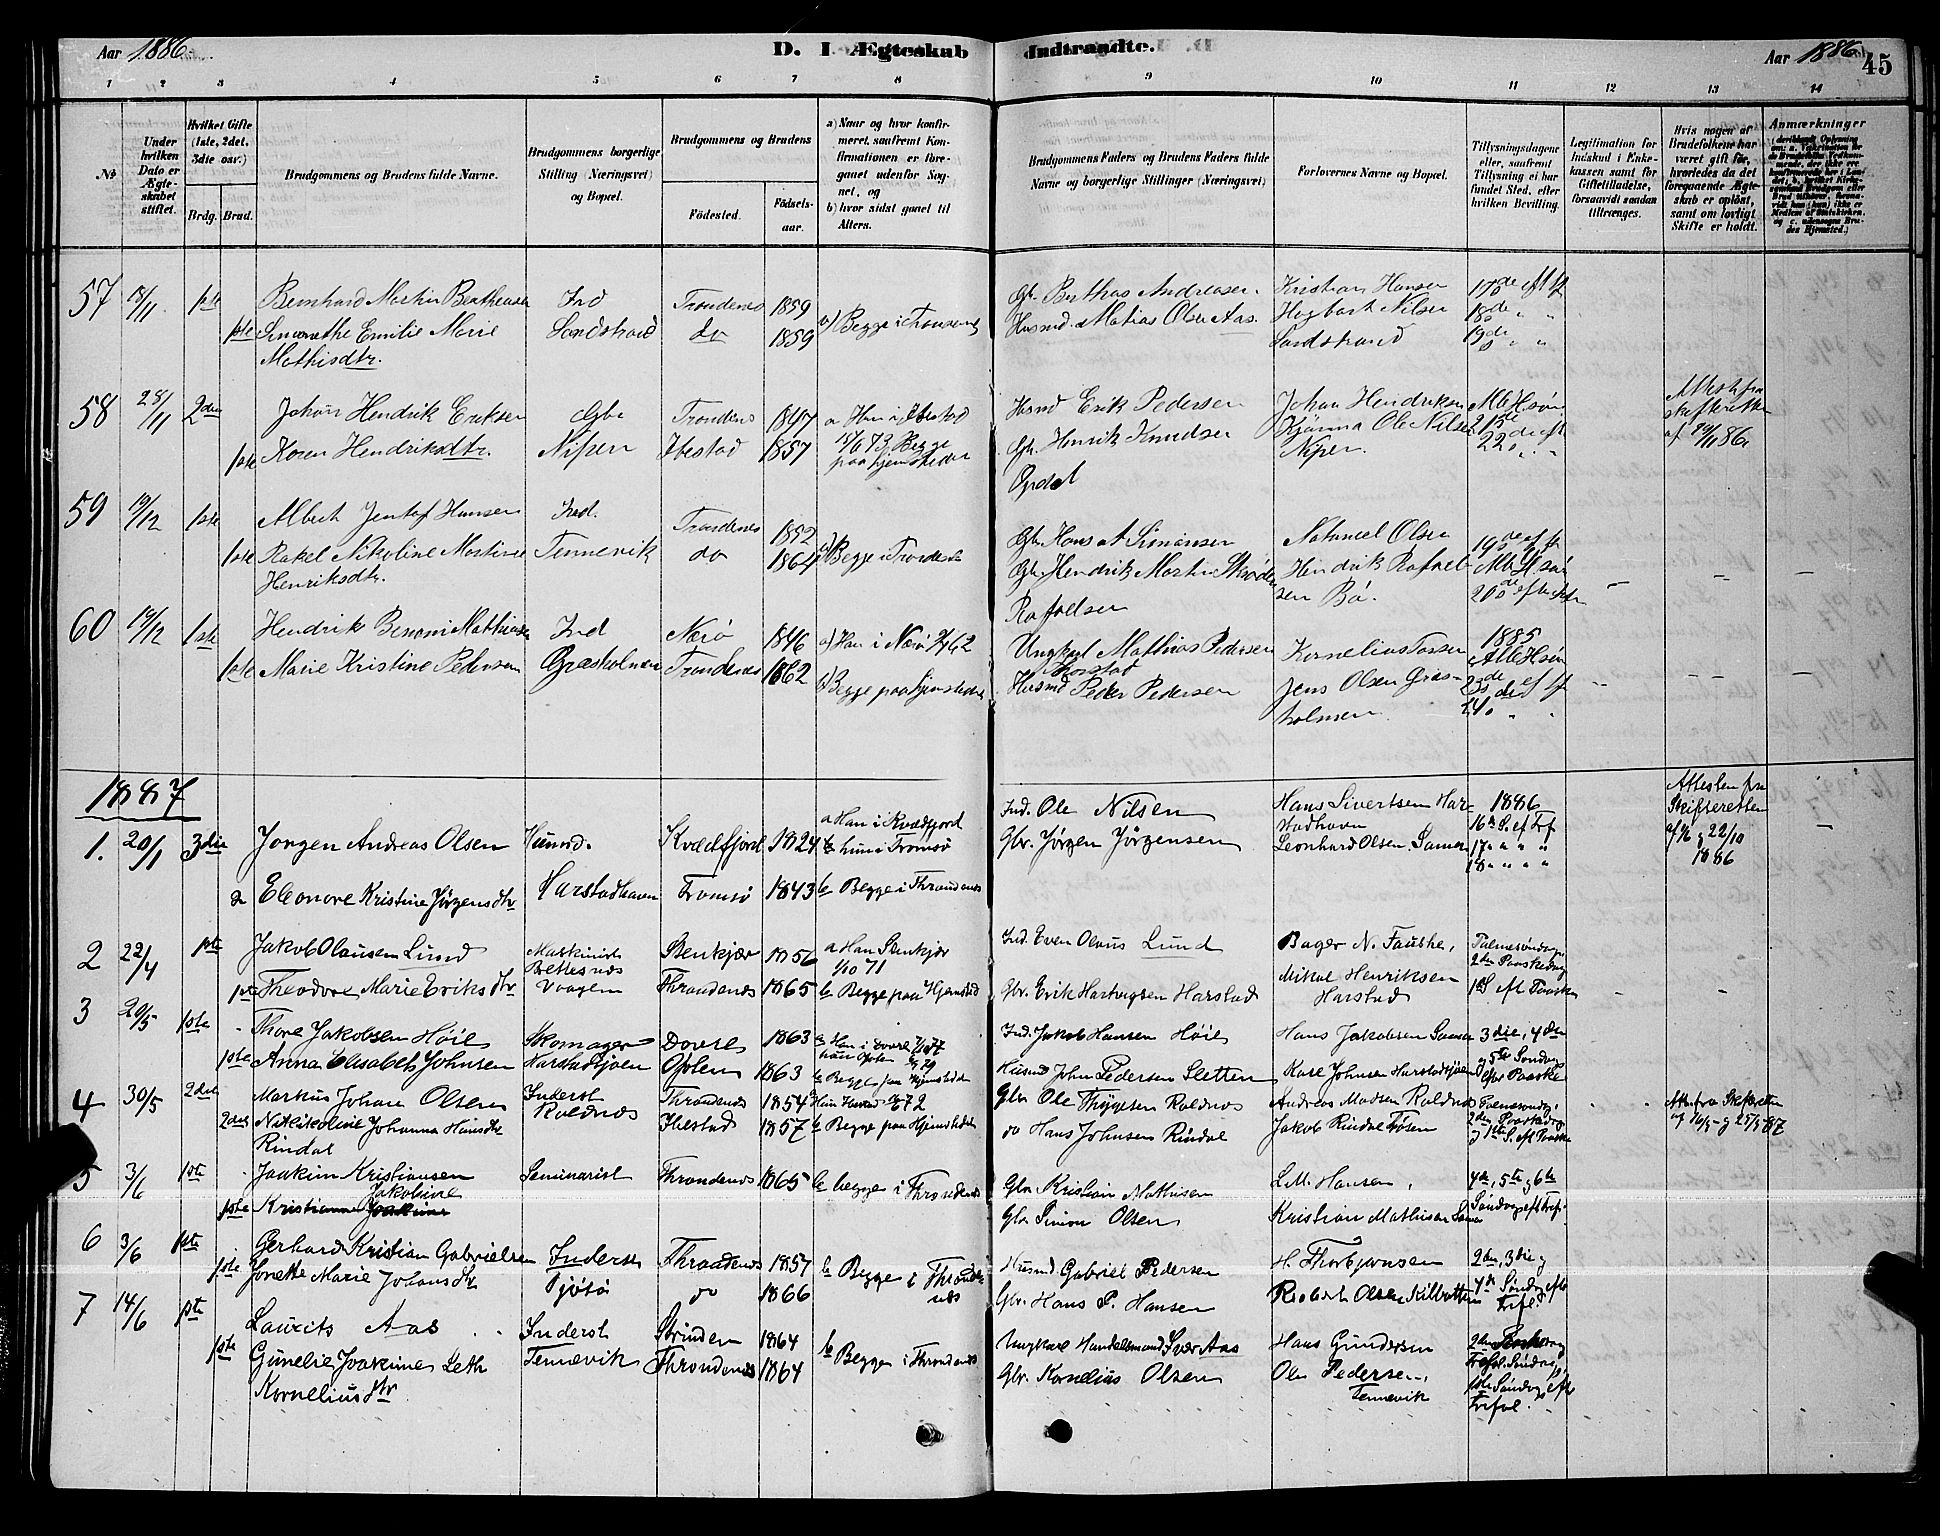 Aar 1886.
D. I Ægteskab Indtraadte.
Aar 1886
45
1 2 3 4 5 6 7 8 9 10 11 12 13 14
No
Under hvilken Dato er Ægteskabet stiftet.
Hvilket Gifte (1ste, 2det, 3die osv.)
Brdg. Brud.
Brudgommens og Brudens fulde Navne.
Brudgommens borgerlige Stilling (Næringsvei) og Bopæl.
Brudgommens og Brudens
Fødested.
Fødselsaar.
a) Naar og hvor konfirmeret, saafremt Konfirmationen er foregaaet udenfor Sognet, og
b) hvor sidst gaaet til Alters.
Brudgommens Faders og Brudens Faders fulde Navne og borgerlige Stillinger (Næringsvei)
Forlovernes Navne og Bopæl.
Tillysningsdagene eller, saafremt Tillysning ei har fundet Sted, efter hvilken Bevilling.
Legitimation for Indskud i Enkekassen samt for Giftetilladelse, forsaavidt saadan tiltrænges.
Hvis nogen af Brudefolkene har været gift før, hvorledes da det foregaaende Ægteskab er opløst, samt om lovligt Skifte er holdt.
Anmærkninger
57 1ste Bernhard Martin Bertheusen Ind Trondenes 1859 Gbr. Berthas Andreasen Kristian Hansen 17de eft tf
1ste Emilie Marie Sandstrand do 1859 Husmd. Matias Olsen Aas. Hagbart Nilsen 18de
Mathisdtr. Sandstrand 19de
58 28/11 2den Johan Hendrik Eriksen Gbr Trondenes 1847 a Han i Ibestad Husmd Erik Pedersen Johan Hendriksen Attest fra
1ste Karen Hendriksdtr. Nipen Ibestad 1857 Begge paa hjemstedet Gbr. Henrik Knudsen Kjønna Ole Nilsen 21de skifteretten
Nipen. 22
59 19/12 1ste Albert Jentof Hansen Ind. Trondenes 1852 Gbr. Hans A Simonsen Natanael Olsen 19de ef tf
1ste Rakel Nikoline Martine Tennevik do 1864 Begge i Trondenes Gbr. Hendrik Martin Hendrik Rafael-
Henriksdtr. Rafaelsen sen Bø. 20de
60 19/12 1ste Hendrik Benoni Mathiasen Ind Nærø 1846 a) Han i Nærø Ungkarl Mathias Pedersen Kornelius 1885
1ste Marie Kristine Pedersen Græsholmen Trondenes 1862 b) Begge paa hjemstedet Husmd Peder Pedersen Jens Olsen Græs- 23de ef tf
holmen. 24
1887
1. 20/1 3die Jorgen Andreas Olsen Husmd. Kvædfjord 1824 a Han i Kvædfjord Ind. Ole Nilsen Hans Sivertsen Har- 1886 Attesten fra
hun i Tromsø Gbr. Jørgen Jørgensen stadhavn 16de S. ef Tref Skifteretten
Leonhard Olsen Samen 17 af 22/10
18 1886
2 Eleonore Kristine Jørgensdtr Harstadhavn Tromsø 1843 b Begge i Throndenes
2 22/4 1ste Jakob Olausen Lund Maskinist Stenkjær 1856 a Han Stenkjær Ind. Even Olaus Lund Bager N. Fauske, Palmesøndag
Bettesnes 1/10 71 Mikal Henriksen 2den Paaskedag
1ste Theodore Marie Eriksdtr Vaagen Throndenes 1865 b Begge paa Hjemsted Gbr. Erik Hartvigsen Harstad Harstad 1ste S. eft Paaske
3 20/5 1ste Thore Jakobsen Høie Skomager Dovre 1863 Han i Dovre Ind. Jakob Hansen Høie Hans Jakobsen Samen 3die, 4de
1ste Anna Elisabeth Johnsen Harstadsjøen 1863 Begge paa Hjemstedet Husmd John Pedersen Sletten Kare Johnsen Harstadsjøen 5te Søndag efter Paaske
4 30/5 2det Markus Johan Olsen Inderst Throndenes 1854 Gbr Ole Thygesen Roldnæs Andreas Madsen Roldnæs Palmesøndag,
2det Nikoline Johanna Hansdtr Roldnæs Ibestad 1857 b Begge paa Hjemstedet do Hans Johnsen Rindal Jakob Rindal 2den Paaskedag
Rindal 1ste S. eft Paaske
5 3/6 1ste Joakim Kristiansen Seminarist Throndenes 1865 b begge i Throndenes Gbr Kristian Mathisen L.M. Hansen, 4de, 5te og 6te
Jakobine
1ste Kristianna Joakime Gbr Simon Olsen Kristian Mathisen Samen Søndag eft Tref.
6 3/6 1ste Gerhard Kristian Gabrielsen Inderst Throndenes 1857 b Begge i Throndenes Husmd. Gabriel Pedersen H. Thorbjørnsen 2den, 3die og
1ste Jonette Marie Johansdtr do 1866 Gbr. Hans P. Hansen Robert Olsen Kilbotten 4de Søndag eft Tref.
7 14/6 1ste Laurits Aas Inderst Strinden 1864 Ungkarl Handelsmand Aas Hans Gundersen 2den
1ste Gunelie Joakime Leth Tennevik Throndenes 1864 b Begge i Throndenes Gbr. Kornelius Olsen Ole Pedersen, Søndag
Korneliusdtr Tennevik 1ste Søndag eft
Trefol.